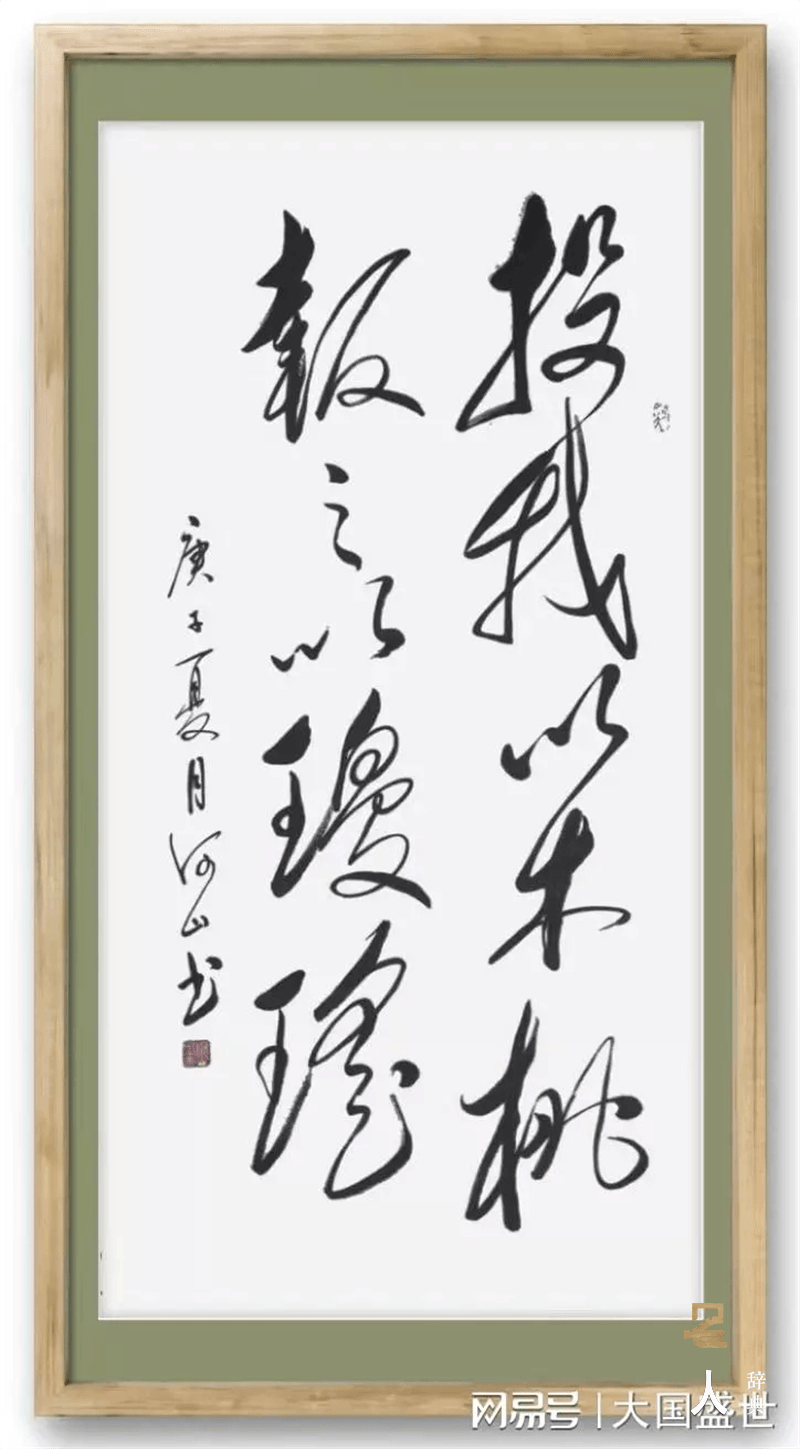 投我以木桃
報之以瓊瑤
庚子夏月河山书
网易号 | 大国盛世
人 辞典